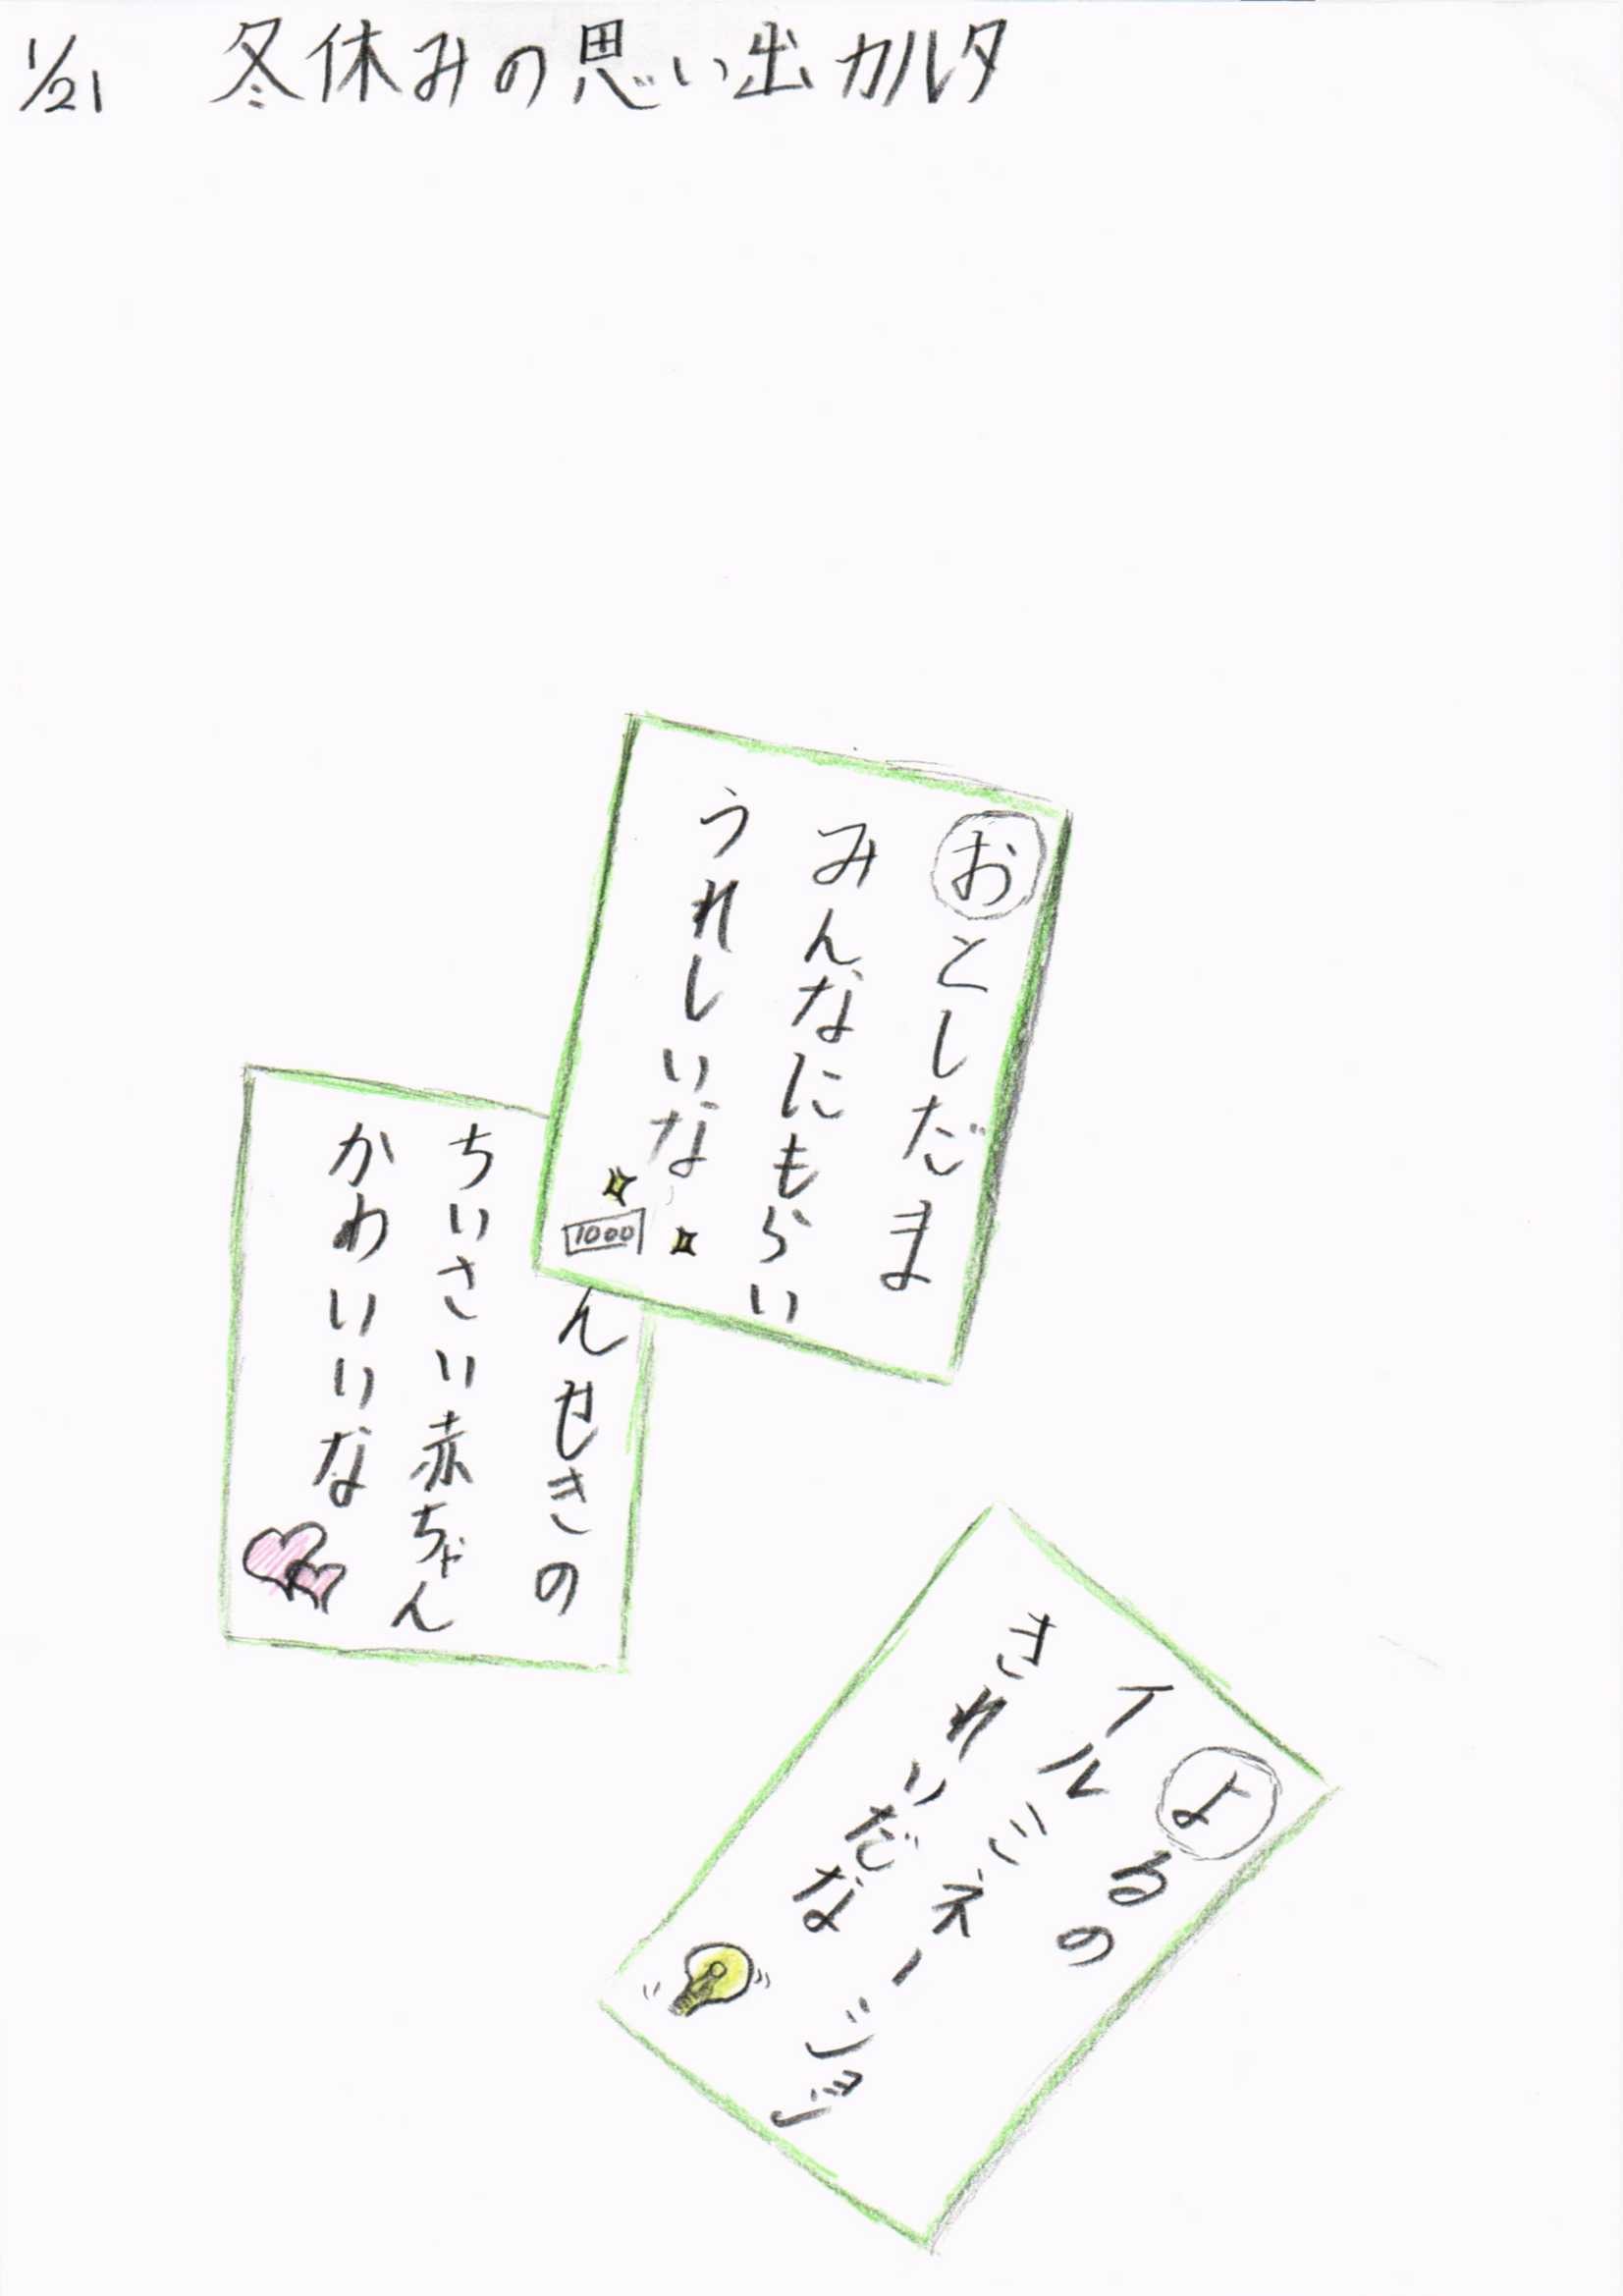 1/21 冬休みの思い出カルタ
おとしだま
みんなにもらい
うれしいな
1000
んせきの
ちいさい赤ちゃん
かわいいな
よるの
イルミネーション
きれいだな